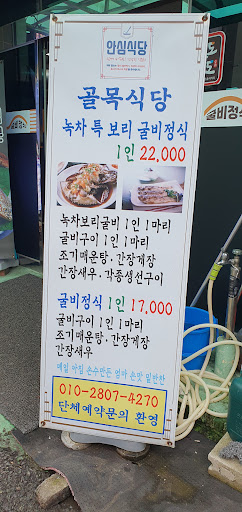 안심식당
골목식당
녹차 특 보리 굴비정식
1인 22,000
녹차보리굴비 1인 1마리
굴비구이 1인 1마리
조기매운탕·간장게장
간장새우·각종생선구이
굴비정식 1인 17,000
굴비구이 1인 1마리
조기매운탕·간장게장
간장새우
매일 아침 손수만든 엄마 손맛 밑반찬
010-2807-4270
단체예약문의 환영
굴비정식